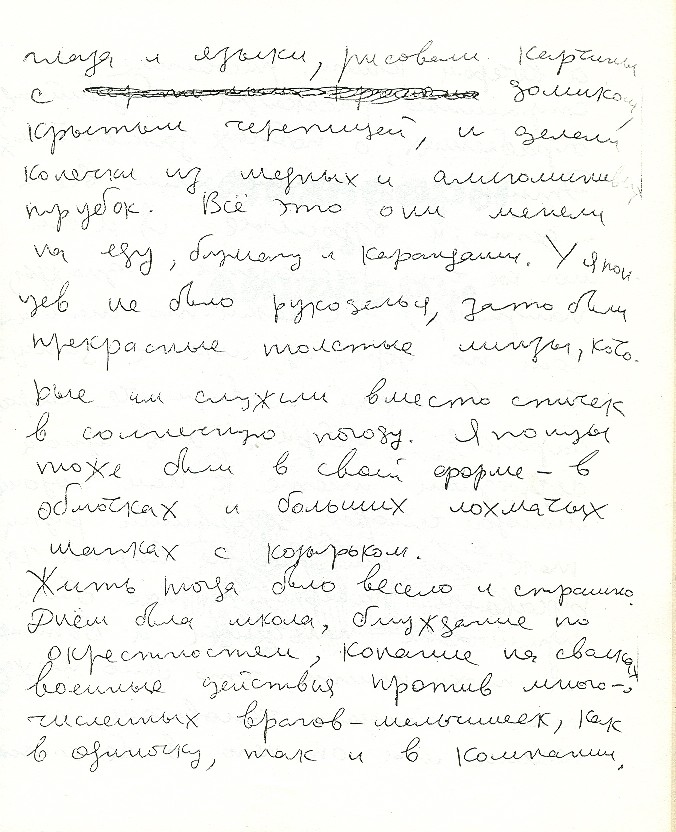 глаза и языки, рисовали картины
с домиком,
крытым черепицей, и делали
колечки из медных и алюминиевых
трубок. Всё это они меняли
на еду, бумагу и карандаши. У япон
цев не было рукоделья, зато были
прекрасные толстые линзы, кото-
рые им служили вместо спичек
в солнечную погоду. Японцы
тоже были в своей форме – в
обмотках и больших лохматых
шапках с козырьком.
Жить тогда было весело и страшно.
Днём была школа, блуждание по
окрестностям, копание на свалках,
военные действия против много-
численных врагов – мальчишек, как
в одиночку, так и в компании.